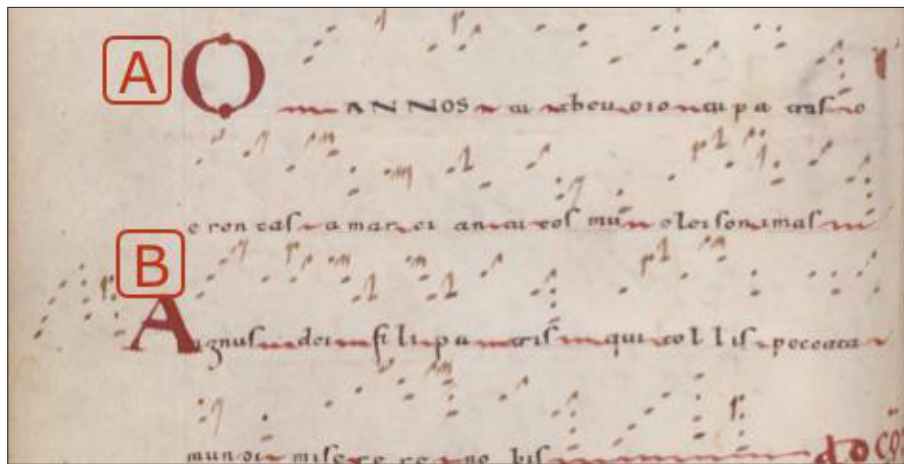 A O ANNOS tu theu oio tu patros o
eron tas amartian tu cos mu eleison imas
B Agnus dei fili patris qui tollis peccata
mundi miserere nobis